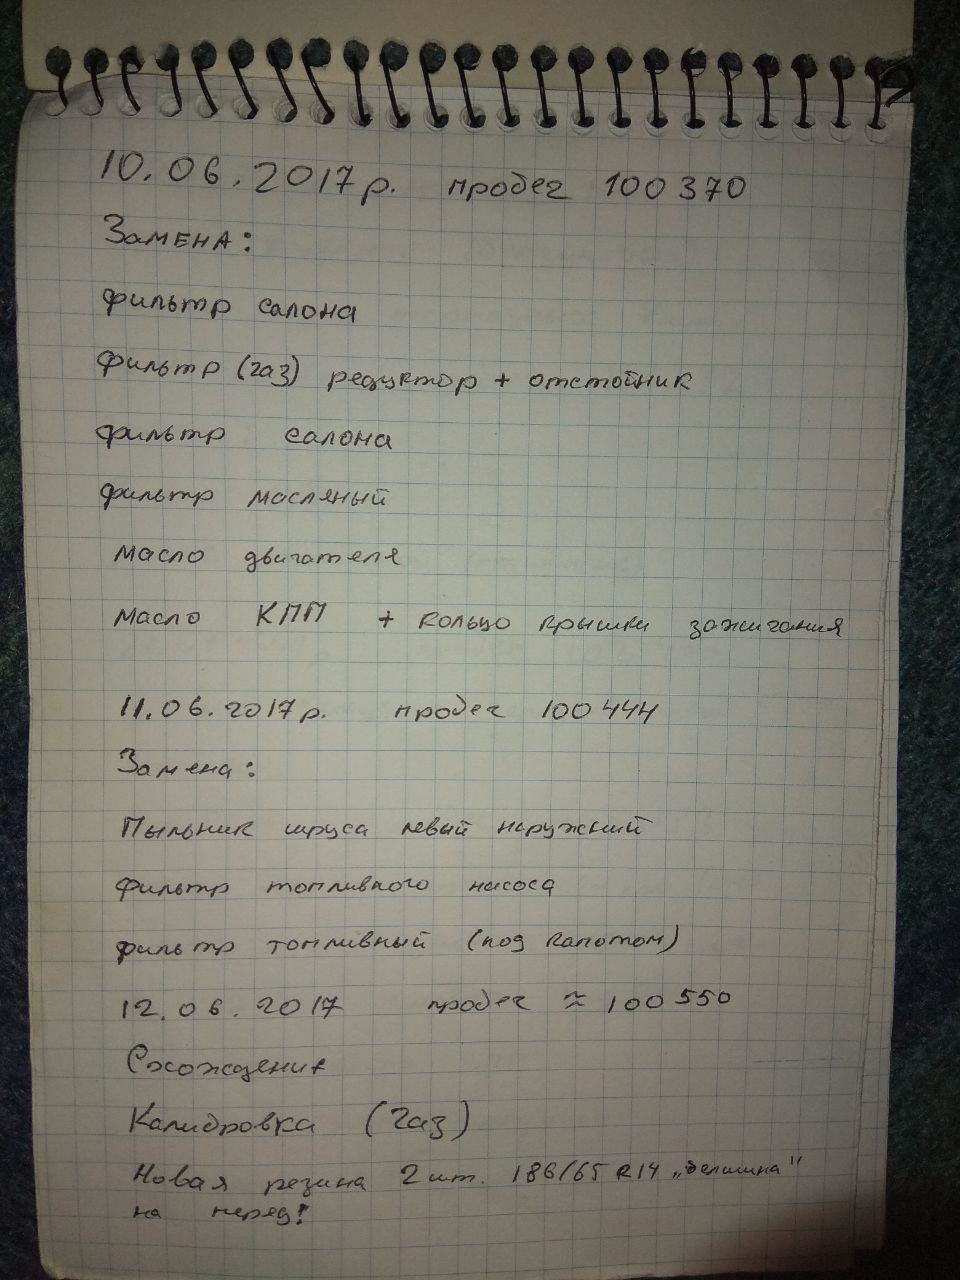 10.06.2017р. пробег 100370
Замена:
фильтр салона
фильтр (газ) редуктор + отстойник
фильтр салона
фильтр масляный
масло двигателя
масло КПП + кольцо крышки зажигания
11.06.2017р. пробег 100444
Замена:
Пыльник шруса левый наружний
фильтр топливного насоса
фильтр топливный (под капотом)
12.06.2017 пробег ≈ 100550
Схождение
Калибровка (газ)
Новая резина 2 шт. 186/65 R14 „белшина"
на перед!